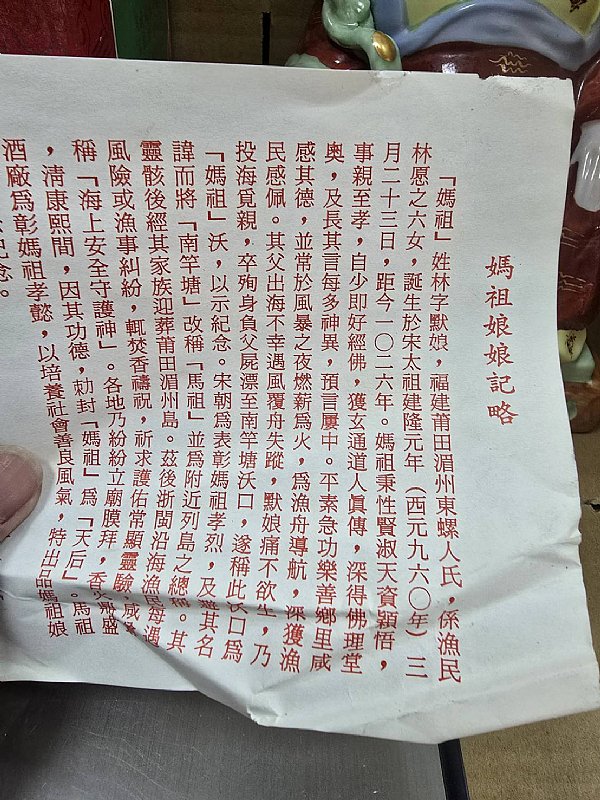 媽祖娘娘記略
「媽祖」姓林字默娘，福建莆田湄州東螺人氏，係漁民
林愿之六女，誕生於宋太祖建隆元年（西元九六〇年）三
月二十三日，距今一〇二六年。媽祖秉性賢淑天資穎悟，
事親至孝，自少即好經佛，獲玄通道人眞傳，深得佛理堂
奧，及長其言每多神異，預言屢中。平素急功樂善鄉里咸
感其德，並常於風暴之夜燃薪為火，為漁舟導航，深獲漁
民感佩。其父出海不幸遇風覆舟失蹤，默娘痛不欲生，乃
投海覓親，卒殉身負父屍漂至南竿塘沃口，遂稱此沃口為
「媽祖」沃，以示紀念。宋朝為表彰媽祖孝烈，及避其名
諱而將「南竿塘」改稱「馬祖」並為附近列島之總稱。其
靈骸後經其家族迎葬莆田湄州島。茲後浙閩沿海漁民每遇
風險或漁事糾紛，輒焚香禱祝，祈求護佑常顯靈驗，咸
稱「海上安全守護神」。各地乃紛紛立廟膜拜，香火鼎盛
，清康熙間，因其功德，勅封「媽祖」為「天后」。馬祖
酒廠為彰媽祖孝懿，以培養社會善良風氣，特出品媽祖娘
紀念。